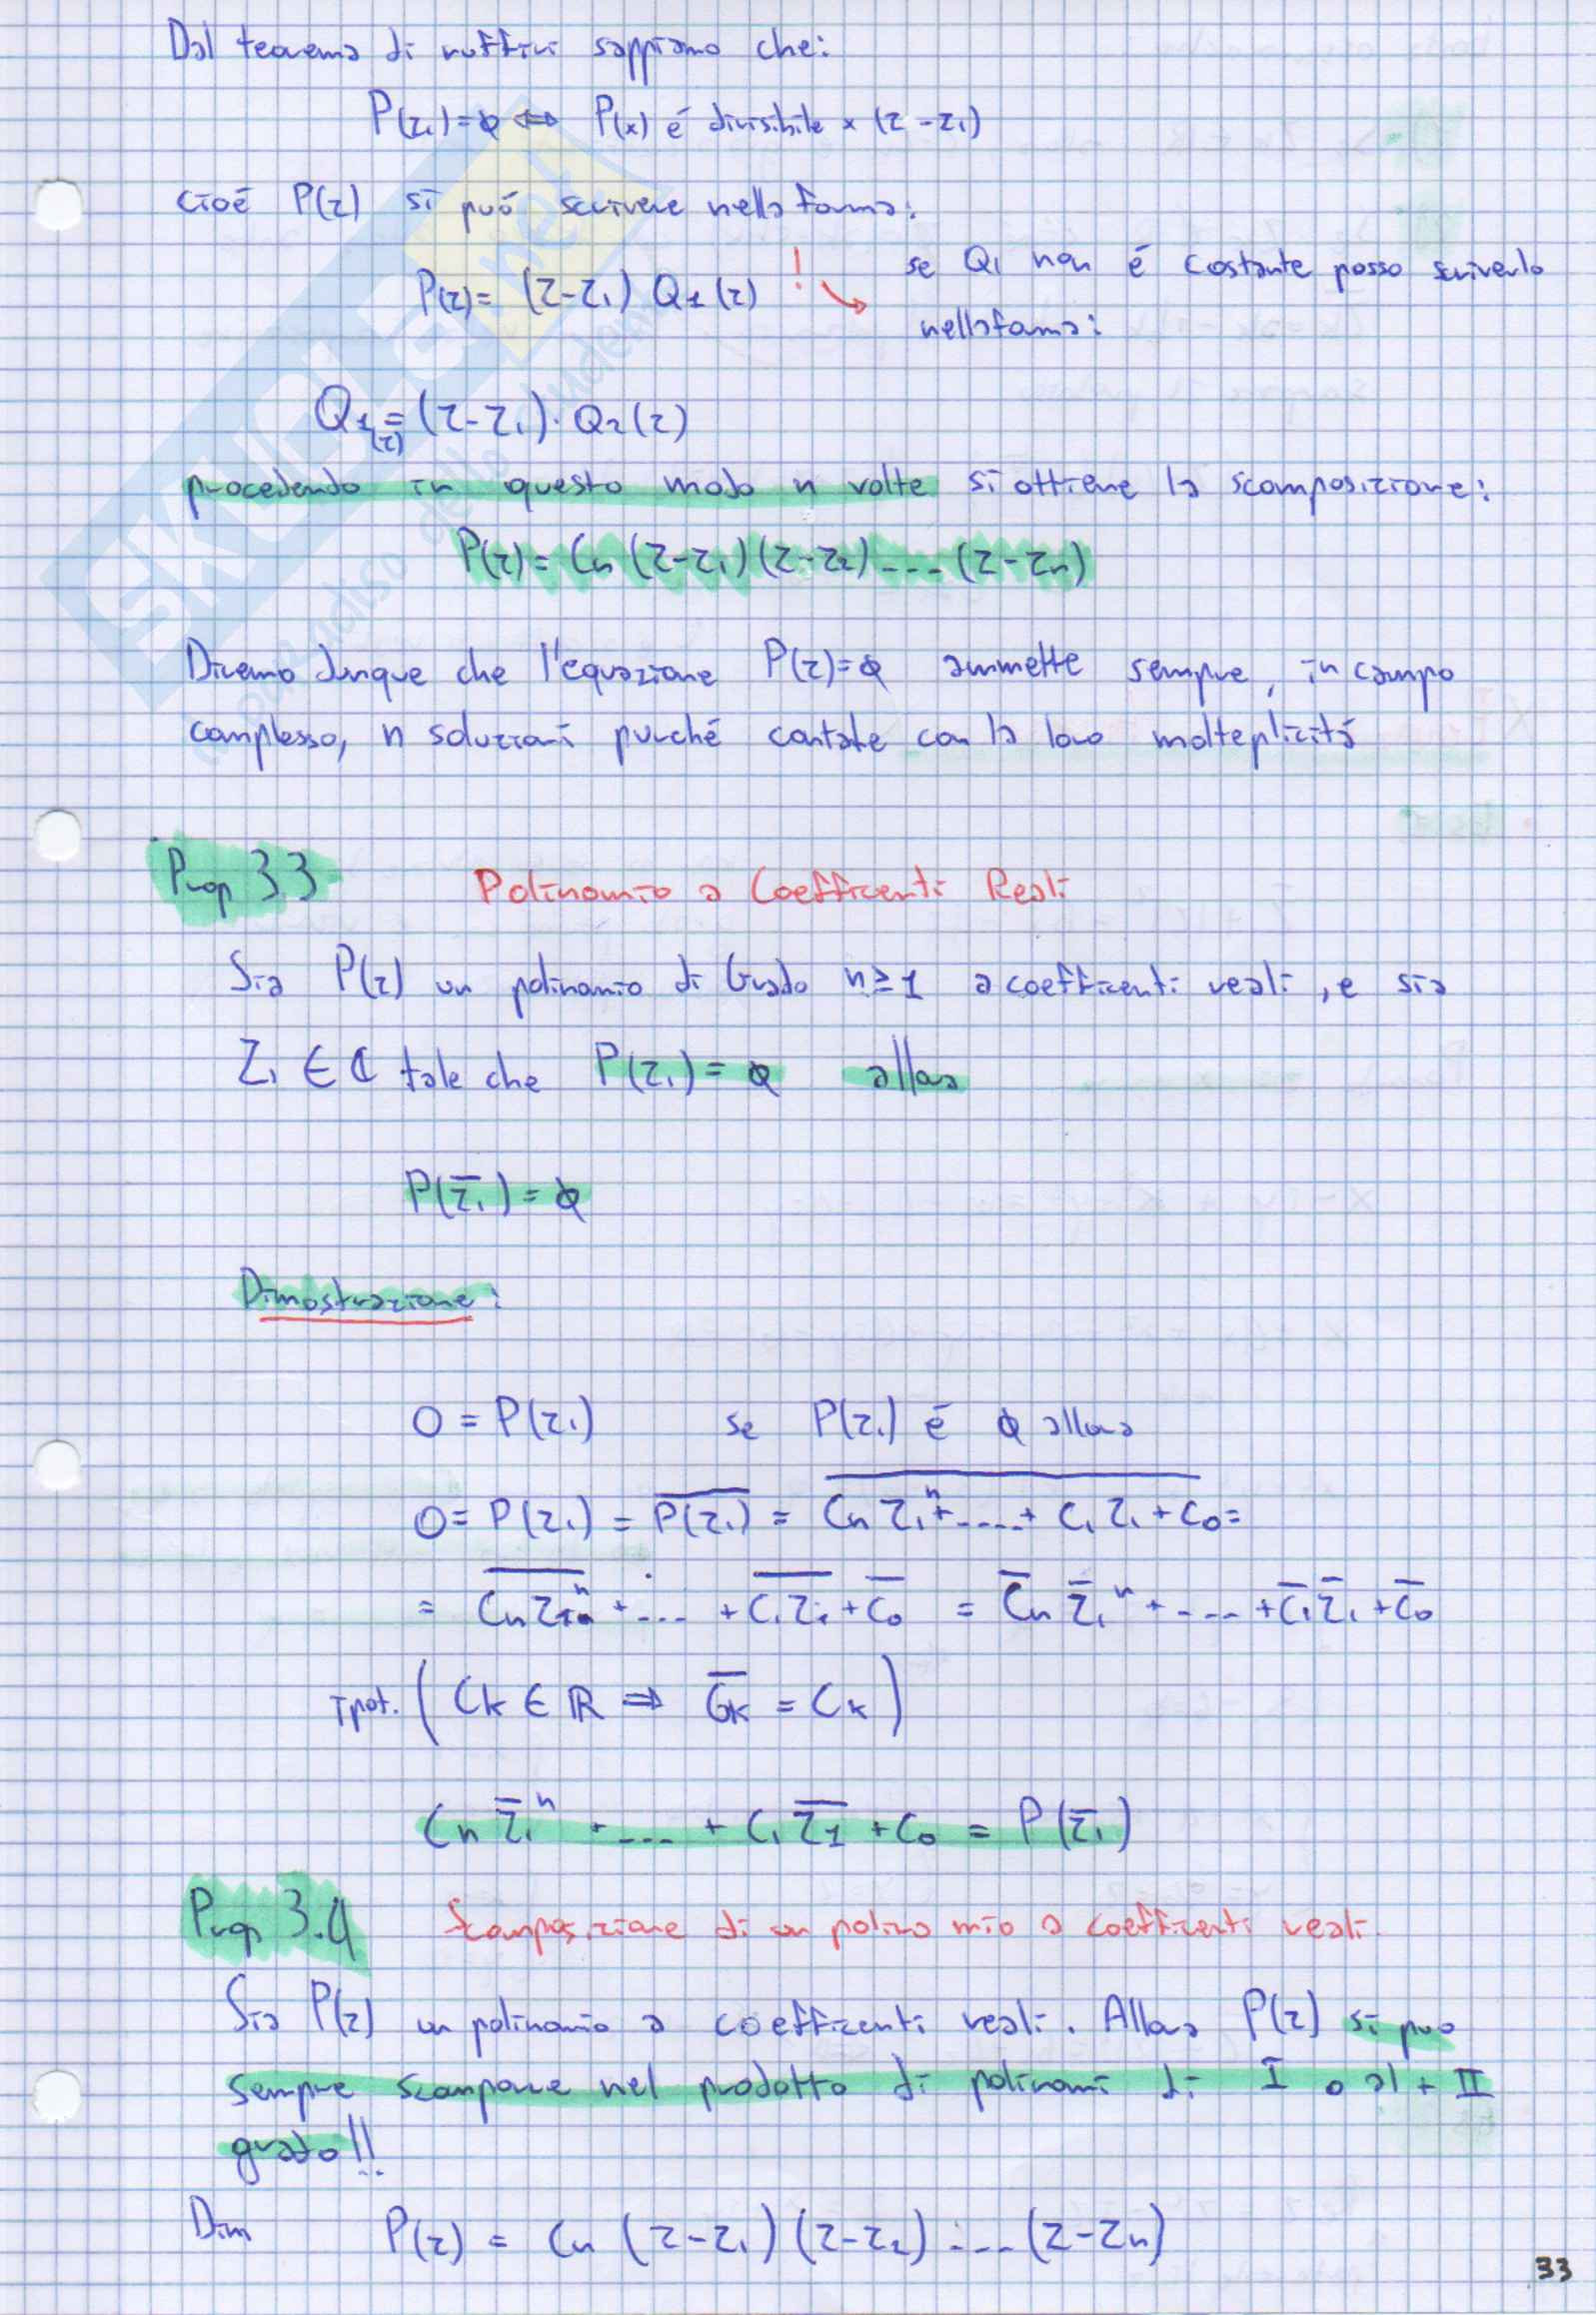 Dal teorema di ruffini sappiamo che:
P(z₁)=0 ⇔ P(x) é divisibile x (z-z₁)
cioé P(z) si puó scrivere nella forma:
P(z)= (z-z₁) Q1(z) ! → se Q1 non é costante posso scriverlo
nella forma:
Q1(z) = (z-z₁)·Q2(z)
procedendo in questo modo n volte si ottiene la scomposizione:
P(z)= Cn (z-z₁)(z-z₂)....(z-zn)
Diremo dunque che l'equazione P(z)=0 ammette sempre, in campo
complesso, n soluzioni purché contate con la loro molteplicitá
Prop 3.3 Polinomio a Coefficenti Reali
Sia P(z) un polinomio di Grado n≥1 a coefficenti reali, e sia
Z₁ ∈ ℂ tale che P(z₁)=0 allora
P(z̅₁)=0
Dimostrazione:
0 = P(z₁) se P(z₁) é 0 allora
0 = P(z₁) = \overline{P(z₁)} = \overline{Cn z₁ⁿ+....+ C₁ z₁ + C₀} =
= \overline{Cn z₁ⁿ} +.... + \overline{C₁ z₁} + \overline{C₀} = C̅n z̅₁ⁿ +....+ C̅₁ z̅₁ + C̅₀
Ipot. (Ck ∈ ℝ ⇒ C̅k = Ck)
Cn z̅₁ⁿ +.... + C₁ z̅1 + C₀ = P(z̅₁)
Prop 3.4 Scomposizione di un polinomio a coefficenti reali.
Sia P(z) un polinomio a coefficenti reali. Allora P(z) si puo
sempre scomporre nel prodotto di polinomi di I o al + II
grado!!
Dim P(z) = Cn (z-z₁)(z-z₂)....(z-zn)
33
SKUOLA.net